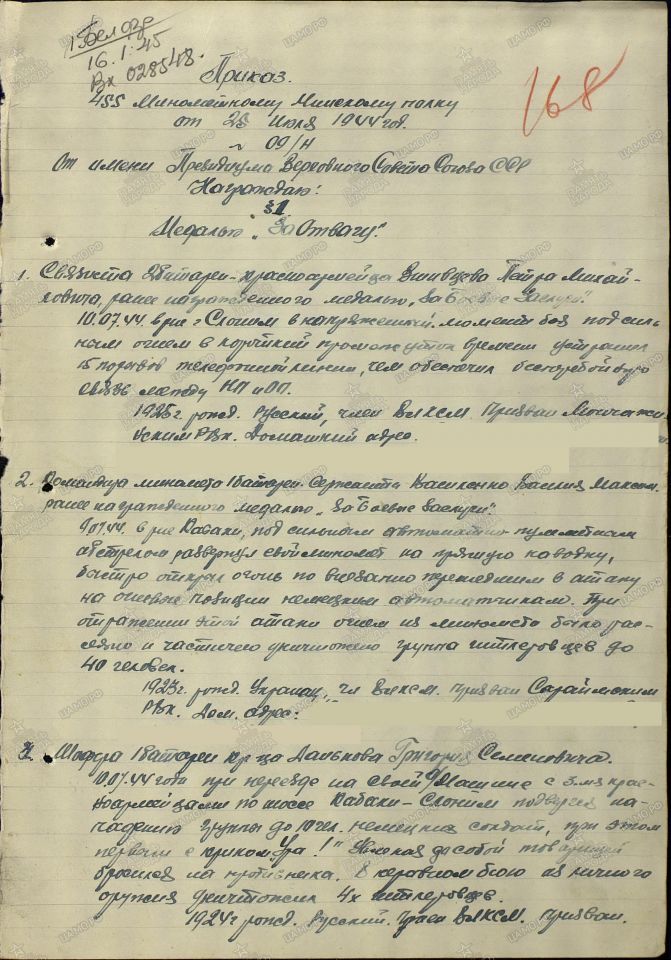 Белозе
16.1.45
Вх 028548.
168
Приказ.
455 Миномётному Минскому полку
от 25 Июля 1944 год.
№ 09/Н
От имени Президиума Верховного Совета Союза ССР
Награждаю:
§1
Медалью „За Отвагу".
1. Связиста 2батареи-красноармейца Винивцева Петра Михай-
ловича, ранее награжденного медалью „За Боевые Заслуги".
10.07.44 в р-не г Слоним в напряженный момент боя под силь-
ным огнем в короткий промежуток времени устранил
15 порывов телефонной линии, чем обеспечил бесперебойную
связь между НП и ОП.
1925г рожд. Русский, член ВЛКСМ. Призван
ским РВК. Домашний адрес.
2. Командира миномета 1батареи-Сержанта Василенко Василия Максим.
ранее награжденного медалью „За Боевые Заслуги".
9.07.44. в р-не Кабаки, под сильным автоматно пулеметным
обстрелом развернул свой миномет на прямую наводку,
быстро открыл огонь по внезапно перешедшим в атаку
на огневые позиции немецким автоматчикам. При
отражении этой атаки огнем из миномета было рас-
сеяно и частично уничтожено группа гитлеровцев до
40 человек.
1923г. рожд. Украинец, чл ВЛКСМ. призван
РВК. Дом. адрес:
3. Шофера 1батареи кр-ца Данькова Григория Семеновича.
10.07.44 года при переезде на своей а/машине с 3-мя крас-
ноармейцами по шоссе Кабаки-Слоним подвергся на-
падению группы до 10 чел. немецких солдат, при этом
первым с криком „Ура!" увлекая за собой товарищей
бросился на противника. В неравном бою из личного
оружия уничтожил 4х гитлеровцев.
1924г рожд. Русский. Член ВЛКСМ. Призван.